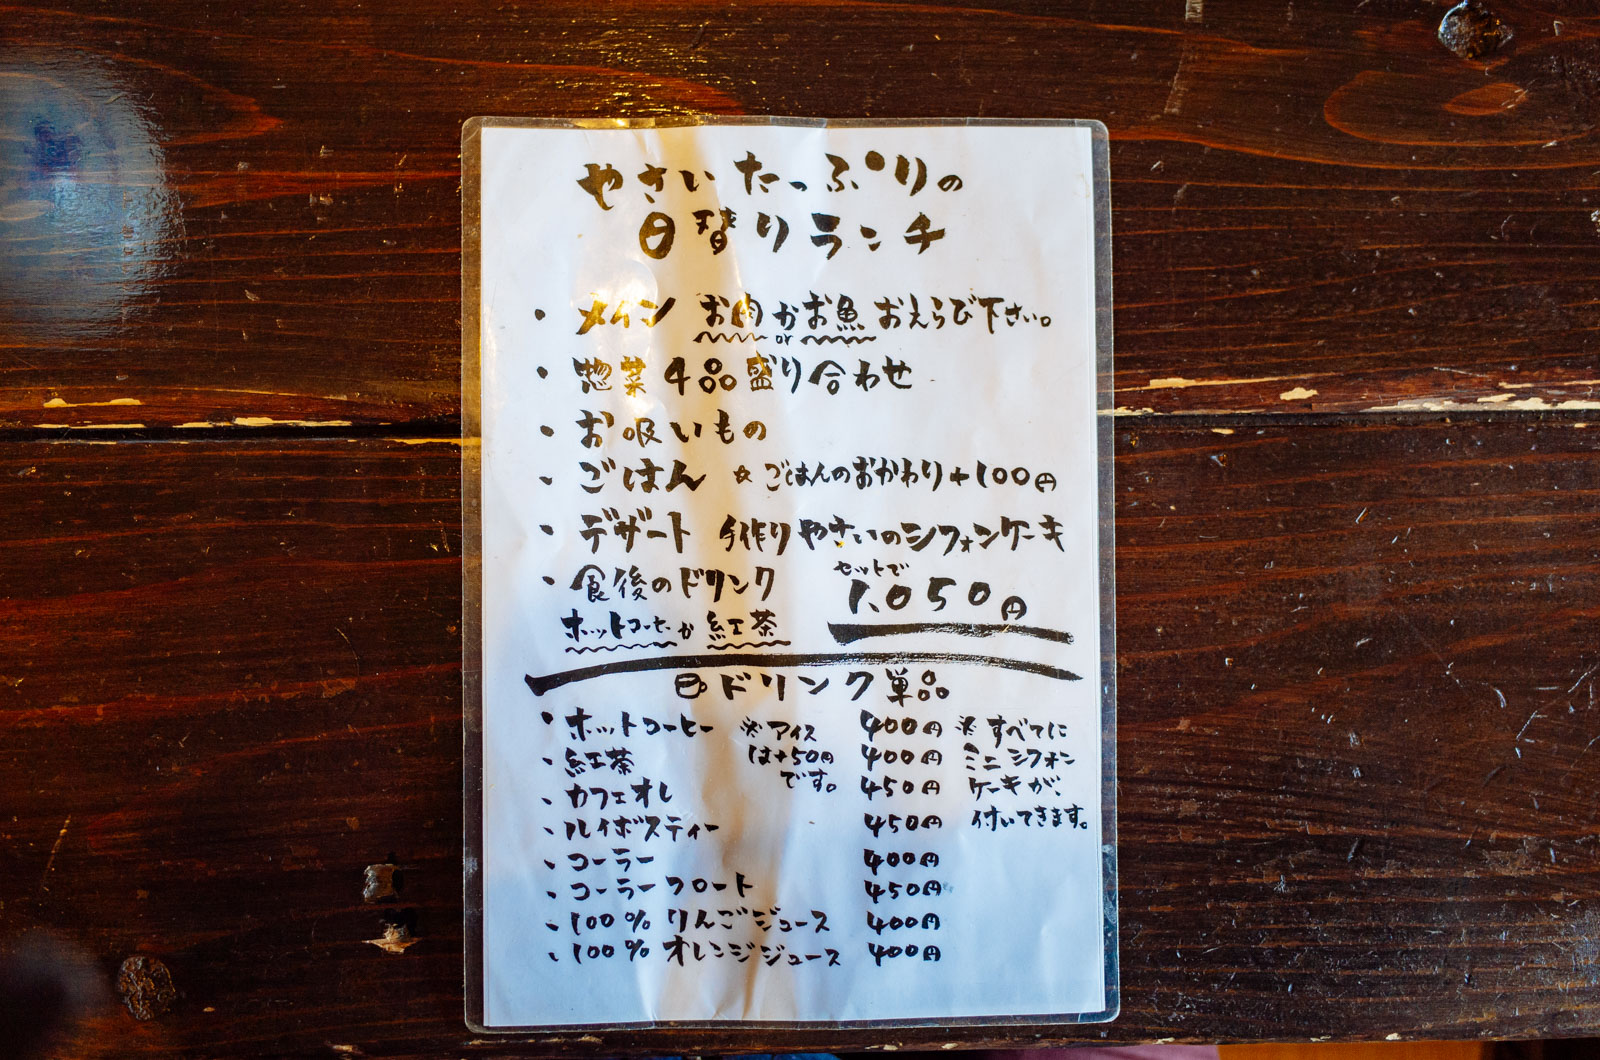 やさいたっぷりの
日替りランチ
・メイン お肉かお魚おえらび下さい。
or
・惣菜4品盛り合わせ
・お吸いもの
・ごはん ☆ごはんのおかわり+100円
・デザート 手作りやさいのシフォンケーキ
・食後のドリンク
ホットコーヒーか紅茶
セットで
1,050円
ドリンク単品
・ホットコーヒー ※アイス 400円 ※すべてに
・紅茶 は+50円 400円 ミニシフォン
・カフェオレ です。 450円 ケーキが、
・ルイボスティー 450円 付いてきます。
・コーラー 400円
・コーラーフロート 450円
・100% りんごジュース 400円
・100% オレンジジュース 400円